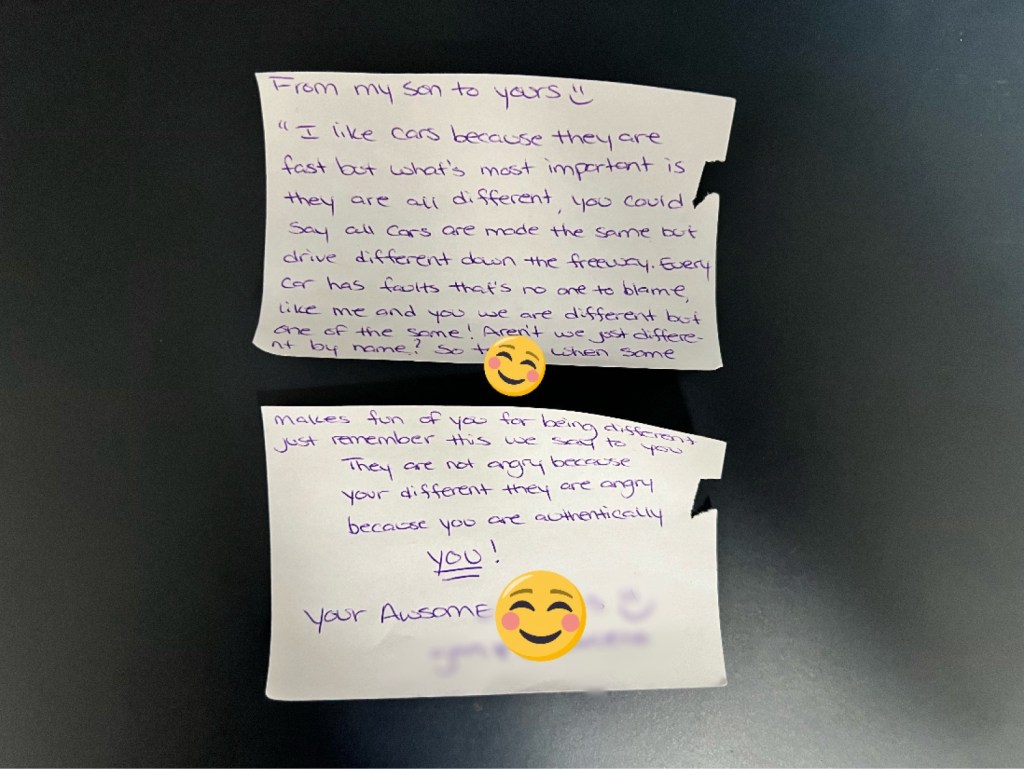 From my son to yours
"I like cars because they are
fast but what's most important is
they are all different, you could
say all cars are made the same but
drive different down the freeway. Every
car has faults that's no one to blame,
like me and you we are different but
one of the same! Aren't we just differe-
nt by name? So when some
makes fun of you for being different
just remember this we say to you
They are not angry because
your different they are angry
because you are authentically
you!
Your Awsome